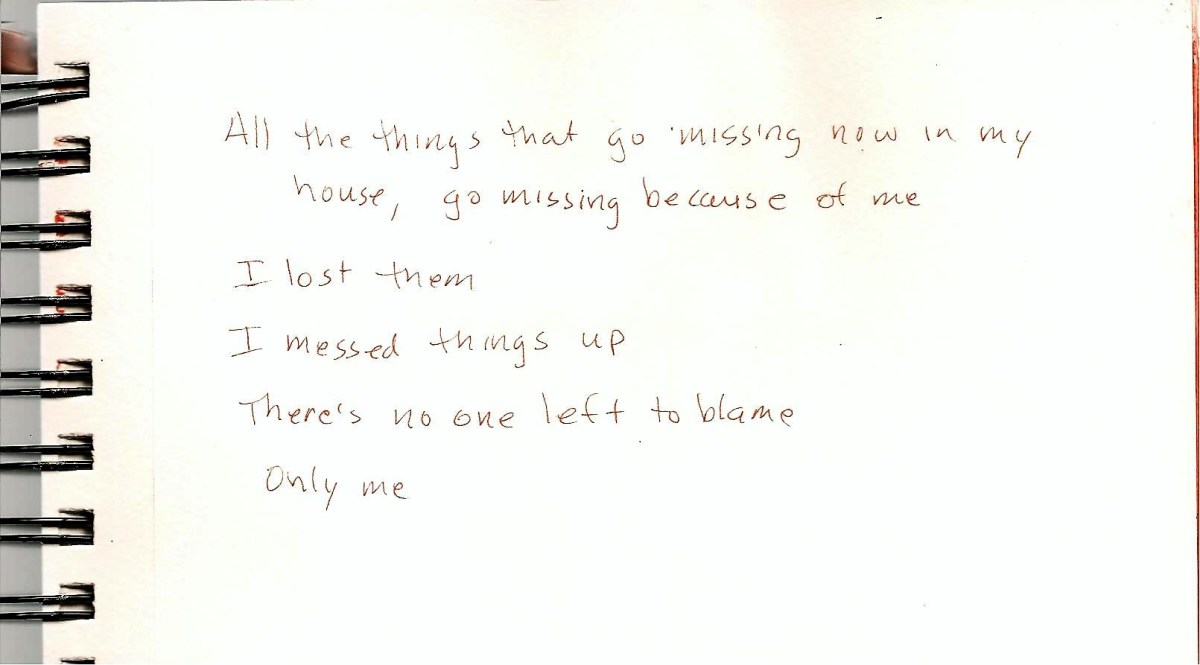 All the things that go missing now in my
house, go missing because of me
I lost them
I messed things up
There's no one left to blame
Only me